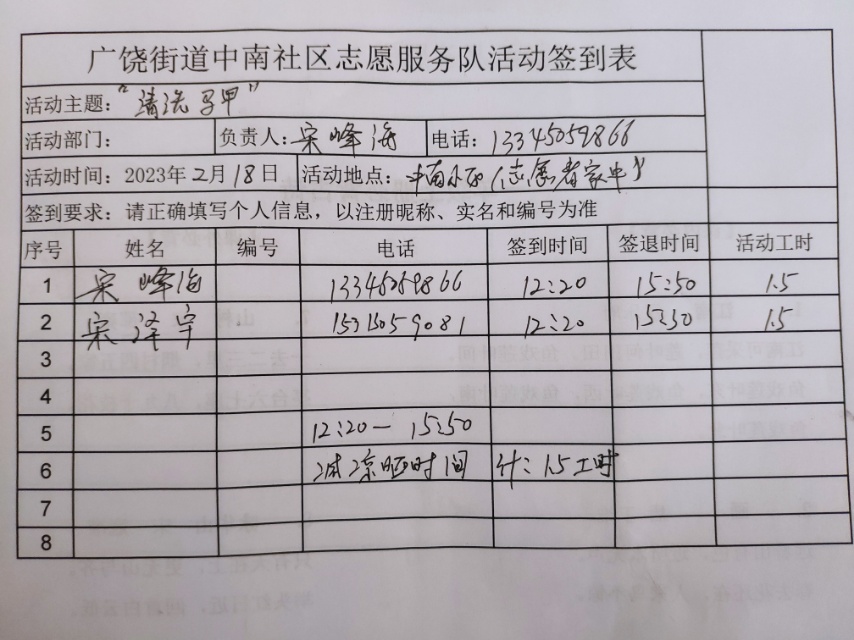 广饶街道中南社区志愿服务队活动签到表
活动主题:“清洗马甲”
活动部门: 负责人:宋峰海 电话:13345059866
活动时间:2023年2月18日 活动地点:中南小区(志愿者家中)
签到要求:请正确填写个人信息,以注册昵称、实名和编号为准
序号 姓名 编号 电话 签到时间 签退时间 活动工时
1 宋峰海 13345059866 12:20 15:50 1.5
2 宋泽宇 15315059081 12:20 15:50 1.5
3
4
5 12:20— 15:50
6 减凉晒时间 计:1.5工时
7
8